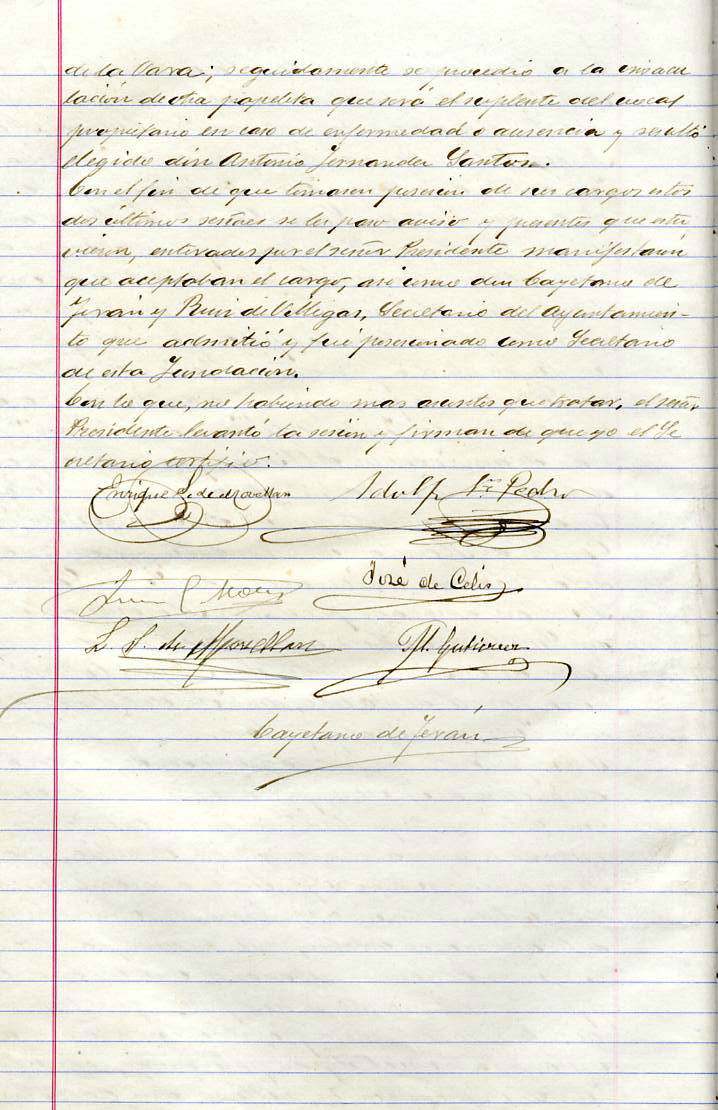 de la Vara; seguidamente se procedio a la insacu
lación de otra papeleta que será el suplente del vocal
propietario en caso de enfermedad o ausencia y resultó
elegido don Antonio Fernandez Santos.
Con el fin de que tomasen posesión de sus cargos estos
dos últimos señores se les paso aviso y presentes que estu
vieron, enterados por el señor Presidente manifestaron
que aceptaban el cargo, asi como don Cayetano de
Terán y Ruiz de Villegas, Secretario del Ayuntamien-
to que admitió y fué posesionado como Secretario
de esta Fundación.
Con lo que, no habiendo mas asuntos que tratar, el señor
Presidente levantó la sesión y firman de que yo el Se
cretario certifico.
Enrique S. de Movellan Adolfo Sn Pedro
José de Celis
L. S. de Movellan M. Gutierrez
Cayetano de Terán